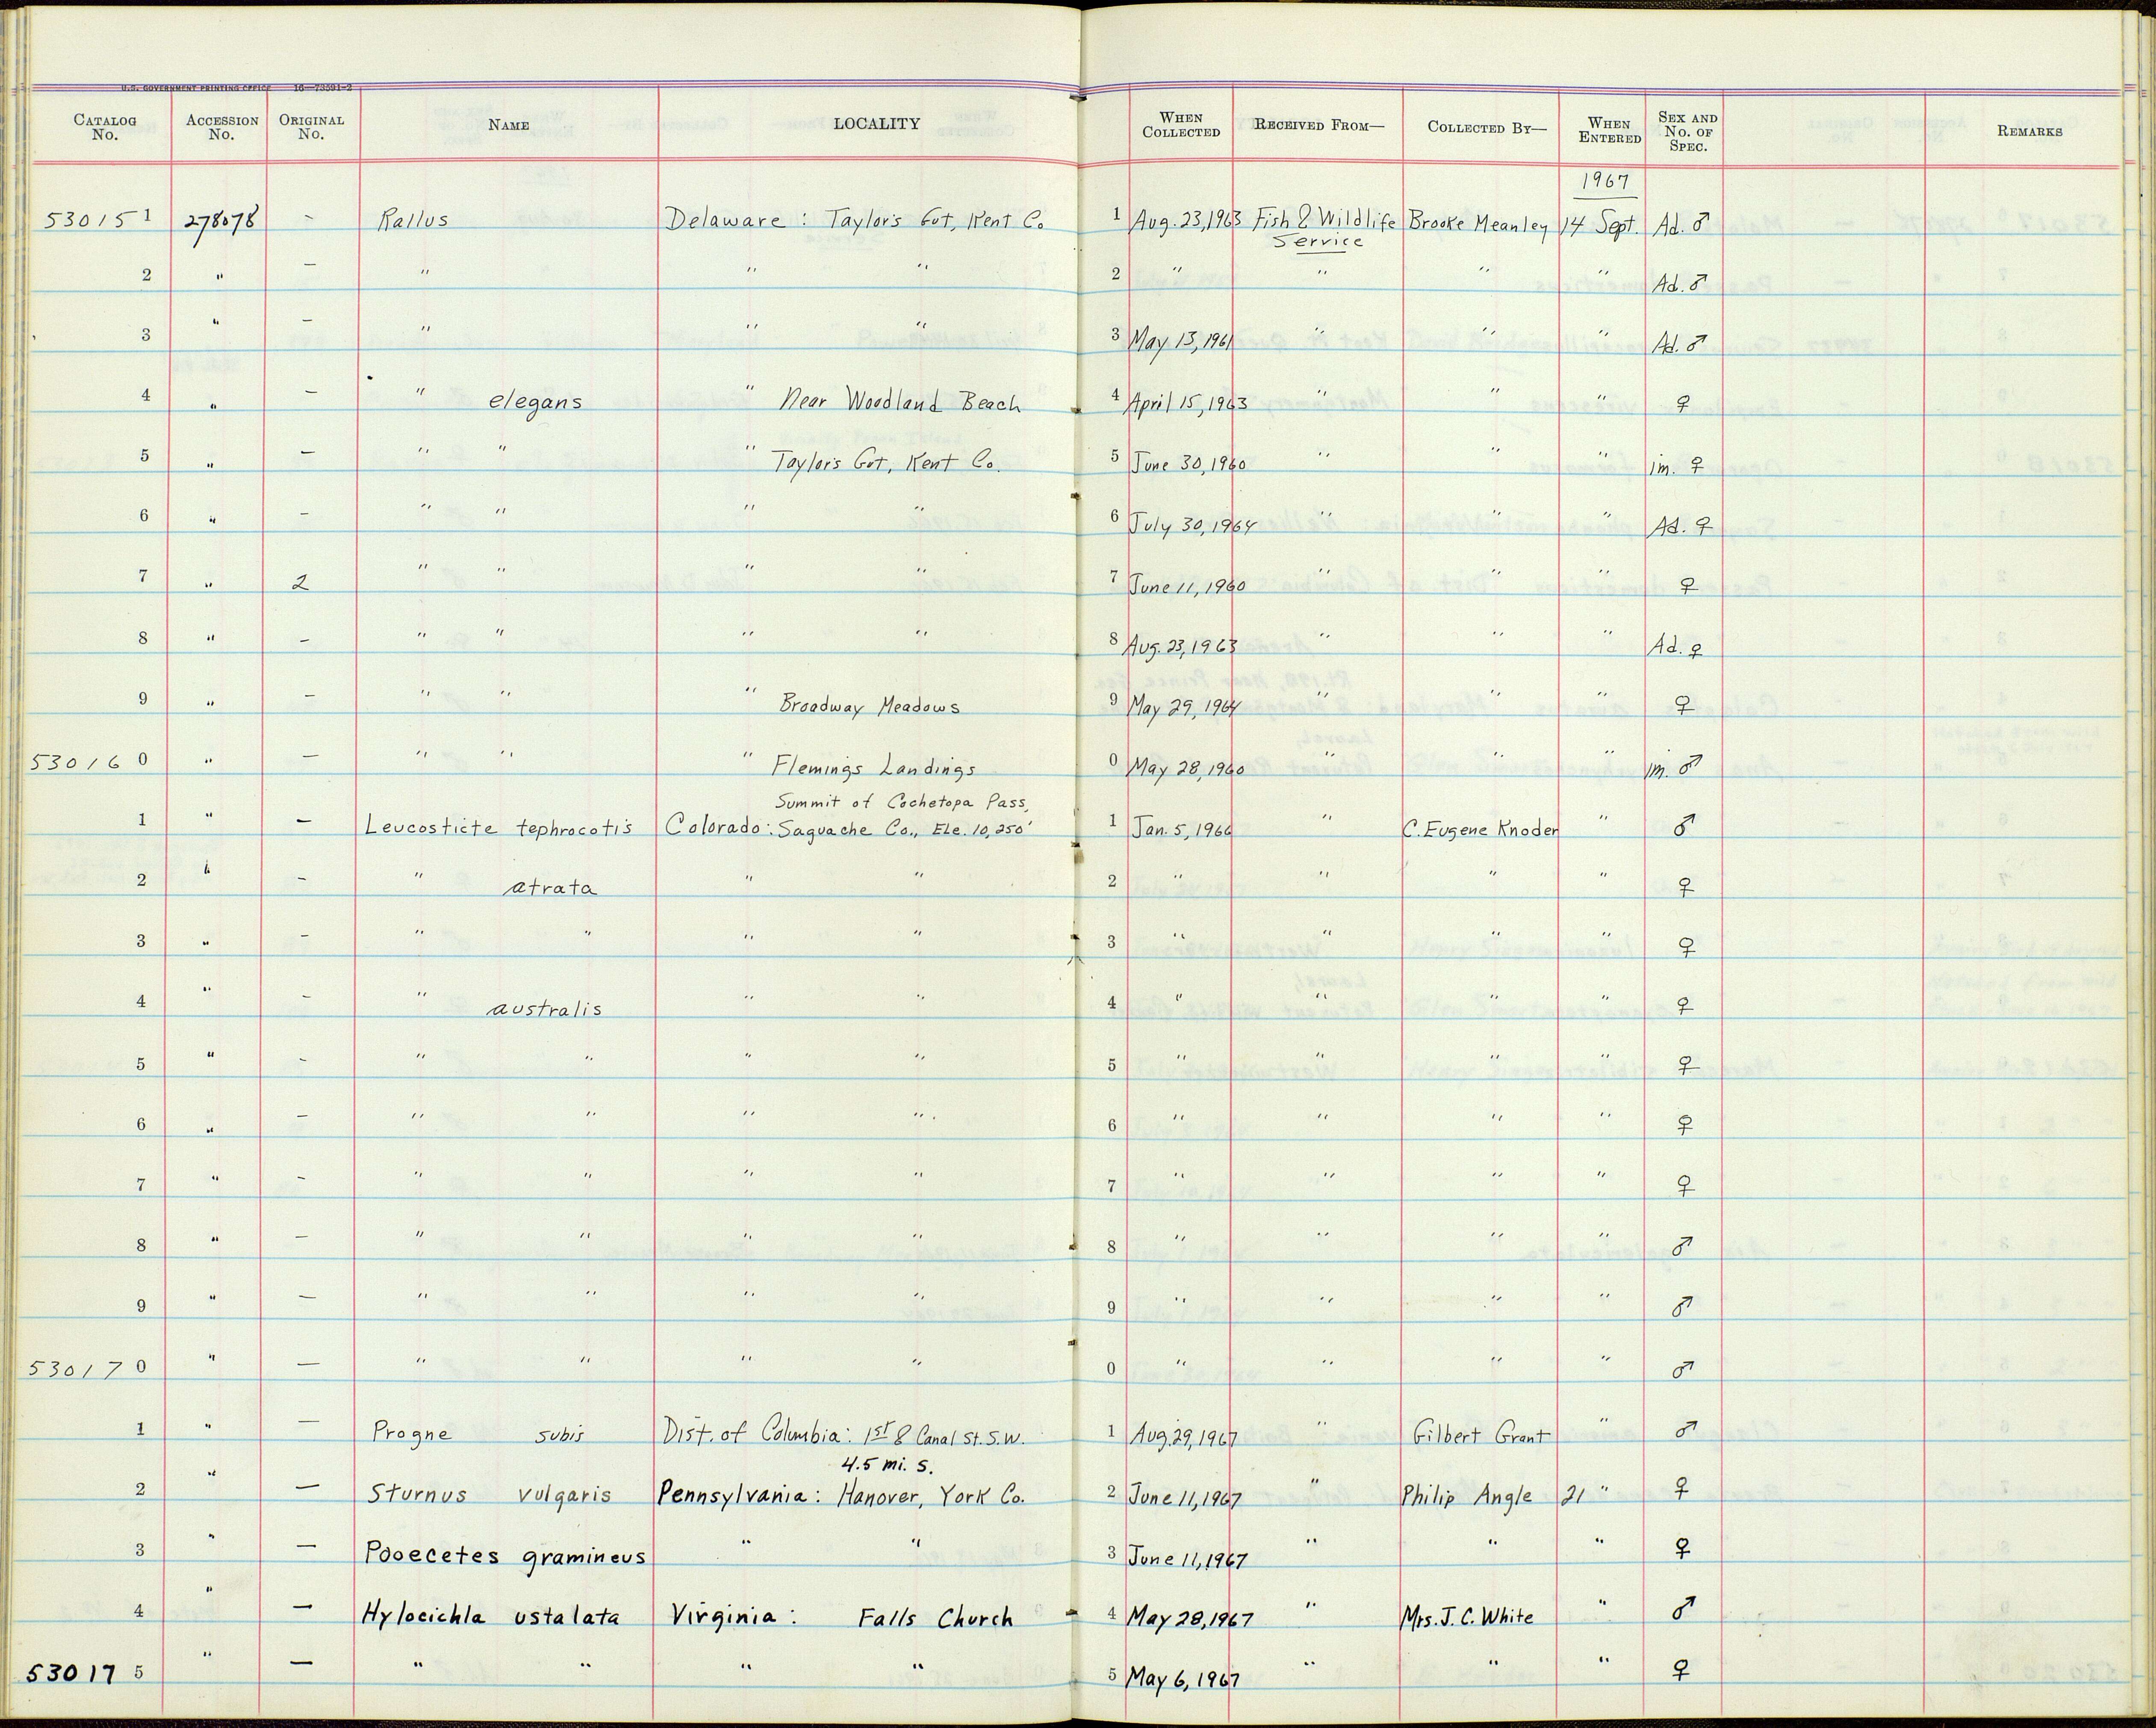 U.S. GOVERNMENT PRINTING OFFICE 16—73591-2
CATALOG No. ACCESSION No. ORIGINAL No. NAME LOCALITY WHEN COLLECTED RECEIVED FROM— COLLECTED BY— WHEN ENTERED SEX AND No. OF SPEC. REMARKS
1967
53015 1 278078 - Rallus Delaware : Taylor's Gut, Kent Co. 1 Aug. 23, 1963 Fish & Wildlife Service Brooke Meanley 14 Sept. Ad. ♂
2 " — " " " 2 " " " " Ad. ♂
3 " — " " " 3 May 13, 1961 " " " Ad. ♂
4 " — " elegans " Near Woodland Beach 4 April 15, 1963 " " " ♀
5 " — " " " Taylor's Gut, Kent Co. 5 June 30, 1960 " " " im. ♀
6 " - " " " " 6 July 30, 1964 " " " Ad. ♀
7 " 2 " " " " 7 June 11, 1960 " " " ♀
8 " - " " " " 8 Aug. 23, 1963 " " " Ad. ♀
9 " — " " " Broadway Meadows 9 May 29, 1964 " " " ♀
53016 0 " — " " " Flemings Landings 0 May 28, 1960 " " " im. ♂
Summit of Cochetopa Pass,
1 " — Leucosticte tephrocotis Colorado: Saguache Co., Ele. 10,250' 1 Jan. 5, 1966 " C. Eugene Knoder " ♂
2 " - " atrata " " 2 " " " " ♀
3 " - " " " " 3 " " " " ♀
4 " - " australis " " 4 " " " " ♀
5 " - " " " " 5 " " " " ♀
6 " — " " " " 6 " " " " ♀
7 " - " " " " 7 " " " " ♀
8 " — " " " " 8 " " " " ♂
9 " — " " " " 9 " " " " ♂
53017 0 " — " " " " 0 " " " " ♂
1 " — Progne subis Dist. of Columbia: 1st & Canal St. S.W. 1 Aug. 29, 1967 " Gilbert Grant " ♂
4.5 mi. S.
2 " — Sturnus vulgaris Pennsylvania: Hanover, York Co. 2 June 11, 1967 " Philip Angle 21 " ♀
3 " — Pooecetes gramineus " " 3 June 11, 1967 " " " ♀
4 " — Hylocichla ustalata Virginia : Falls Church 4 May 28, 1967 " Mrs. J. C. White " ♂
53017 5 " — " " " " 5 May 6, 1967 " " " ♀